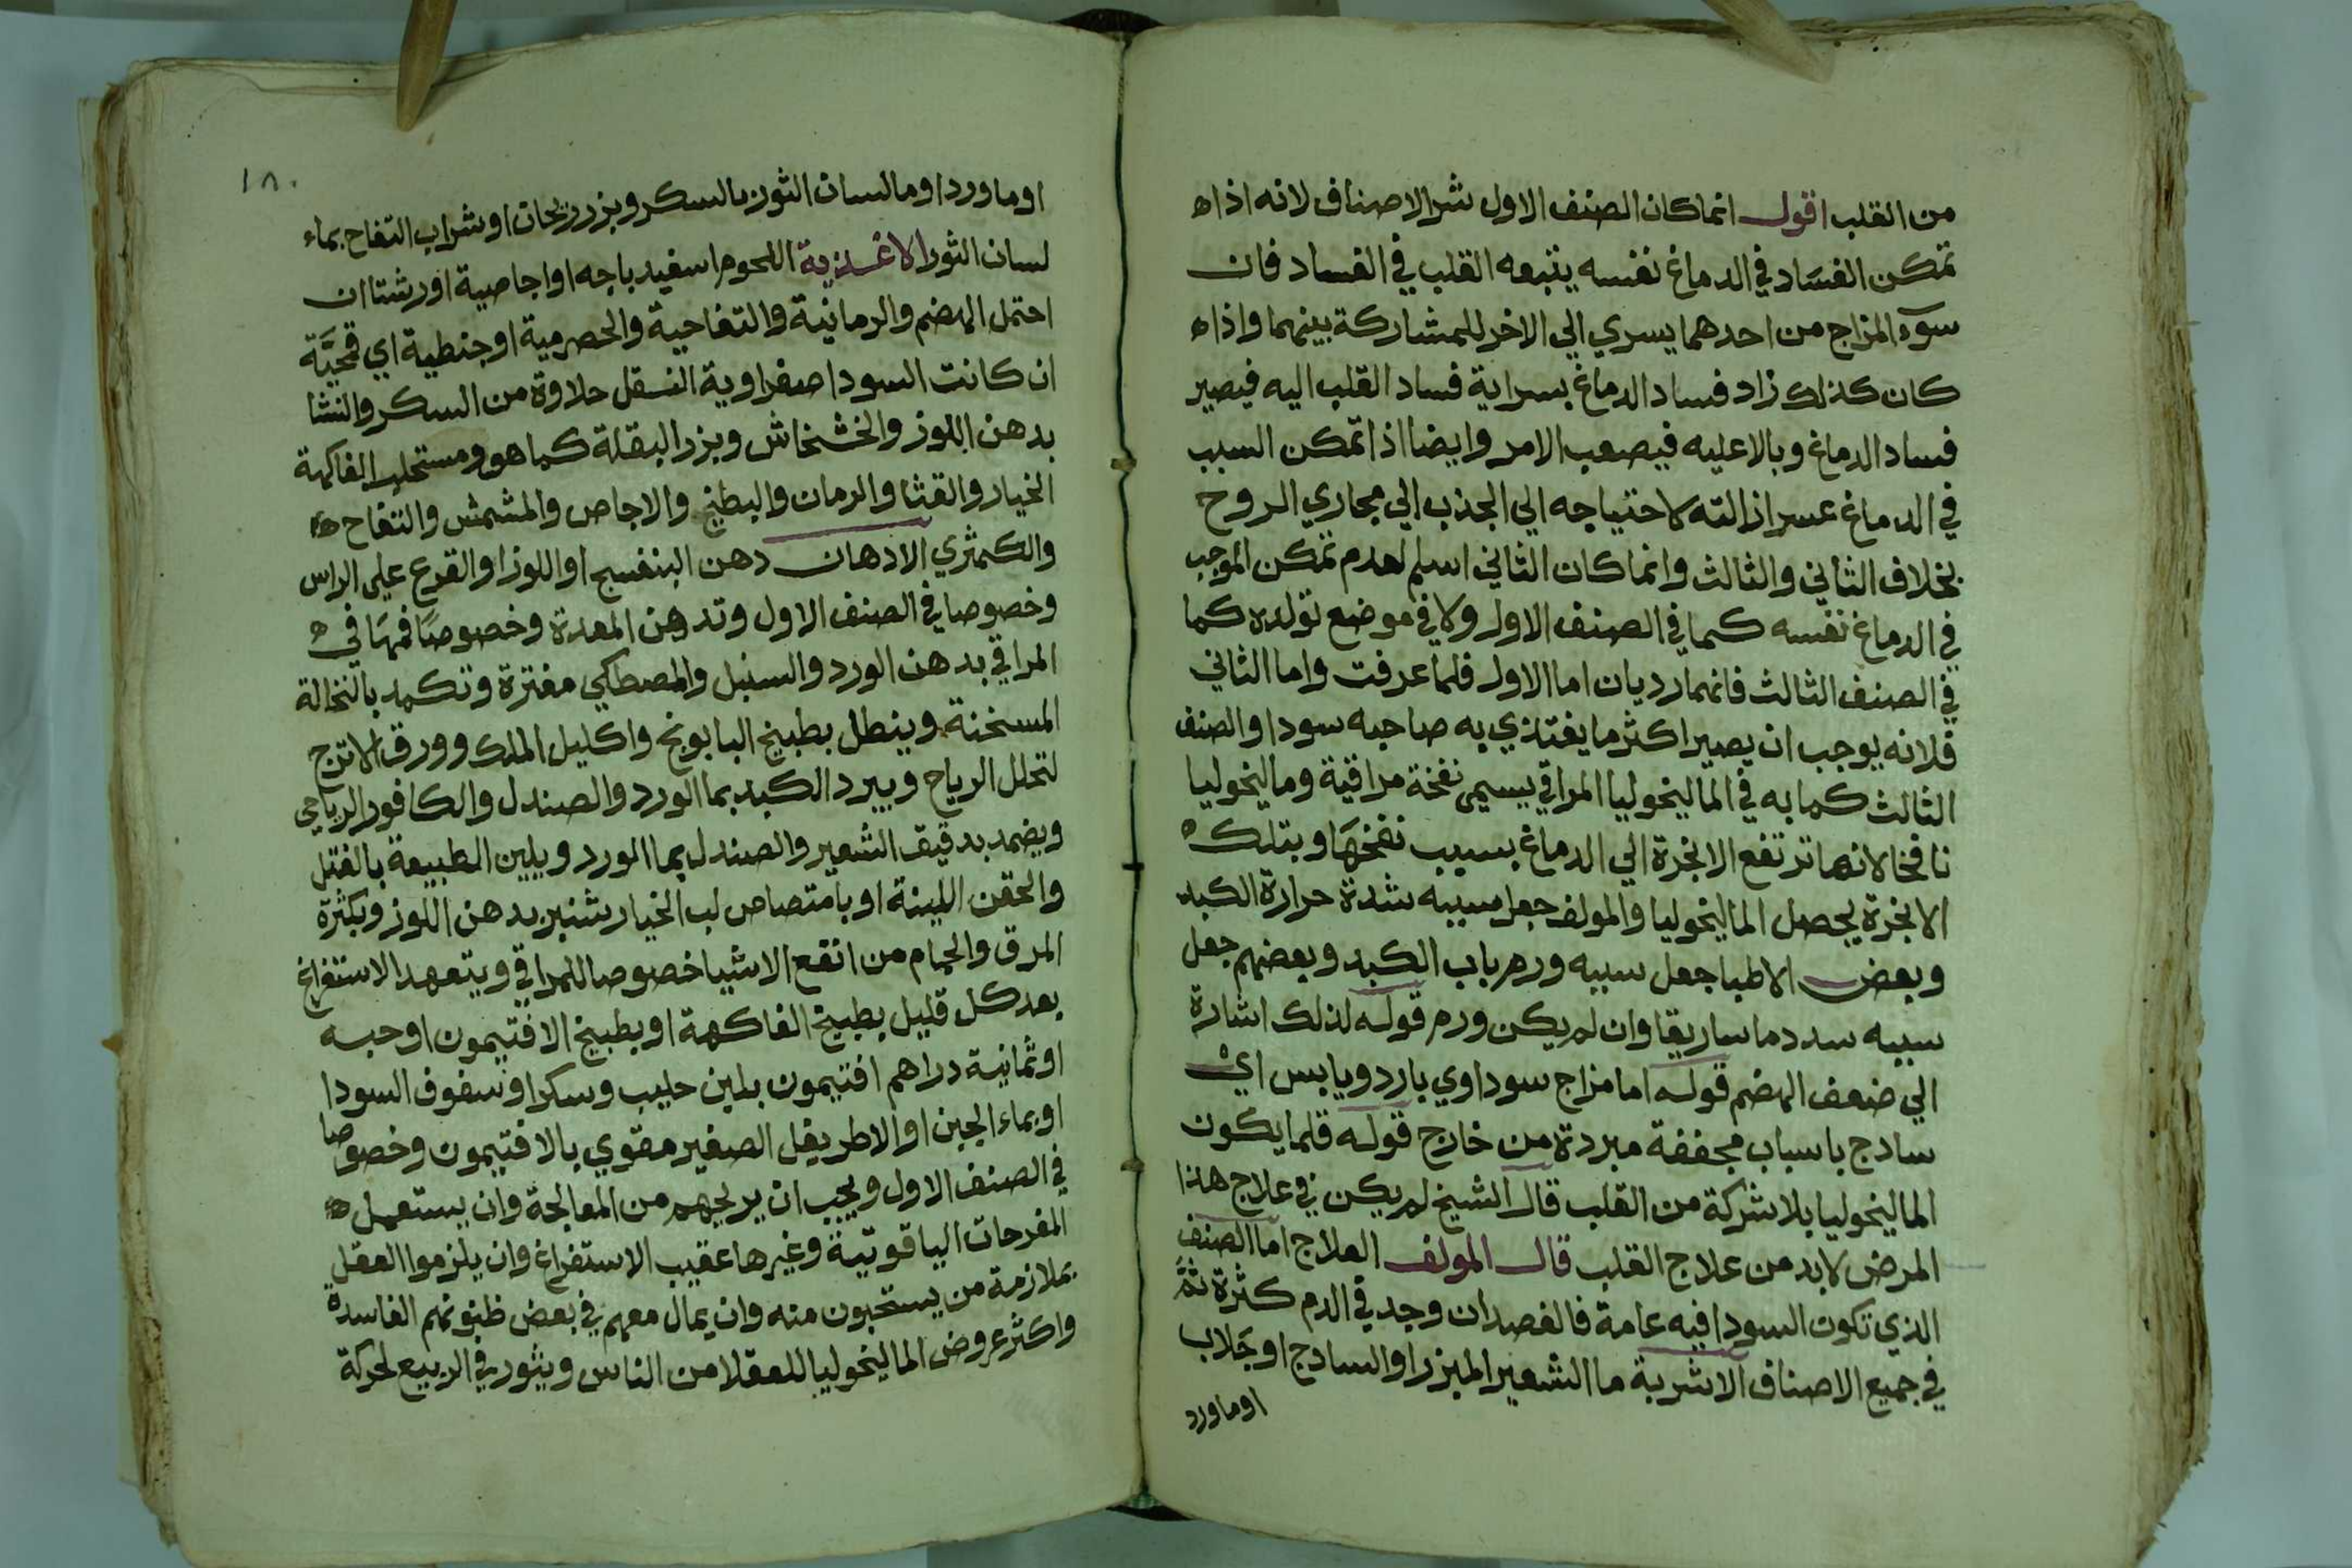 من القلب اقول انما كان الصنف الاول شر الاصناف لانه اذا
تمكن الفساد في الدماغ نفسه يتبعه القلب في الفساد فان
سوء المزاج من احدهما يسري الي الاخر للمشاركة بينهما واذا
كان كذلك زاد فساد الدماغ بسراية فساد القلب اليه فيصير
فساد الدماغ وبالا عليه فيصعب الامر وايضا اذا تمكن السبب
في الدماغ عسر ازالته لاحتياجه الي الجذب الي مجاري الروح
بخلاف الثاني والثالث وانما كان الثاني اسلم لعدم تمكن الموجب
في الدماغ نفسه كما في الصنف الاول ولا في موضع تولده كما
في الصنف الثالث فانهما رديان اما الاول فلما عرفت واما الثاني
فلانه يوجب ان يصير اكثر ما يغتذي به صاحبه سودا والصنف
الثالث كما به في الماليخوليا المراقي يسمى نفخة مراقية وماليخوليا
نافخا لانها ترتفع الابخرة الي الدماغ بسبب نفخها وبتلك
الابخرة يحصل الماليخوليا والمولف جعل سببه شدة حرارة الكبد
وبعض الاطبا جعل سببه ورم باب الكبد وبعضهم جعل
سببه سدد ماساريقا وان لم يكن ورم قوله لذلك اشارة
الي ضعف الهضم قوله اما مزاج سوداوي بارد ويابس اي
سادج باسباب مجففة مبردة من خارج قوله قلما يكون
الماليخوليا بلا شركة من القلب قال الشيخ لم يكن في علاج هذا
المرض لابد من علاج القلب قال المولف العلاج اما الصنف
الذي تكون السودا فيه عامة فالفصد ان وجد في الدم كثرة ثم
في جميع الاصناف الاشربة ما الشعير المبزر او السادج او جلاب
اوماورد
١٨٠
اوماورد اوما لسان الثور بالسكر وبزر ريحان اوشراب التفاح بماء
لسان الثور الاغذية اللحوم اسفيدباجه او اجاصية اورشتا ان
احتمل الهضم والرمانية والتفاحية والحصرمية اوحنطية اي قمحية
ان كانت السودا صفراوية النقل حلاوة من السكر والنشا
بدهن اللوز والخشخاش وبزر البقلة كما هو ومستحلب الفاكهة
الخيار والقثا والرمان والبطيخ والاجاص والمشمش والتفاح
والكمثري الادهان دهن البنفسج او اللوز او القرع علي الراس
وخصوصا في الصنف الاول وتدهن المعدة وخصوصا فمها في
المراقي بدهن الورد والسنبل والمصطكي مفترة وتكمد بالنخالة
المسخنة وينطل بطبيخ البابونج واكليل الملك وورق الاترج
لتحلل الرياح ويبرد الكبد بما الورد والصندل والكافور الرياحي
ويضمد بدقيق الشعير والصندل بما الورد ويلين الطبيعة بالفتل
والحقن اللينة او بامتصاص لب الخيارشنبر بدهن اللوز ويكثرة
المرق والحمام من انفع الاشيا خصوصا للمراقي ويتعهد الاستفراغ
بعد كل قليل بطبيخ الفاكهة او بطبيخ الافتيمون اوحبه
اوثمانية دراهم افتيمون بلبن حليب وسكر او سفوف السودا
اوبماء الجبن او الاطريفل الصغير مقوي بالافتيمون وخصوصا
في الصنف الاول ويجب ان يريحهم من المعالجة وان يستعمل
المفرحات الياقوتية وغيرها عقيب الاستفراغ وان يلزموا العقل
بملازمة من يستحيون منه وان يمال معهم في بعض ظنونهم الفاسدة
واكثر عروض الماليخوليا للعقلا من الناس ويثور في الربيع لحركة